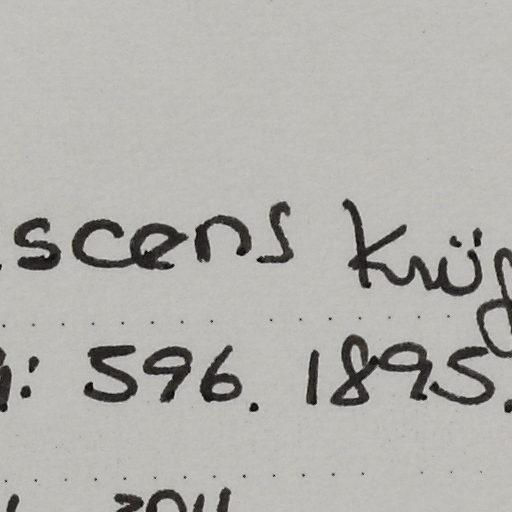 scens Krüg
: 596. 1895.